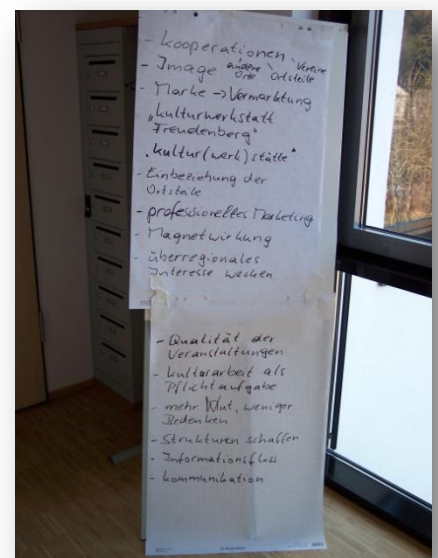 - Kooperationen
- Image andere Orte Ortsteile Vereine
- Marke → Vermarktung
"Kulturwerkstatt
Freudenberg"
"Kultur(werk)stätte"
- Einbeziehung der
Ortsteile
- professionelles Marketing
- Magnetwirkung
- überregionales
Interesse wecken
- Qualität der
Veranstaltungen
- Kulturarbeit als
Pflichtaufgabe
- mehr Mut, weniger
Bedenken
- Strukturen schaffen
- Informationsfluss
- Kommunikation